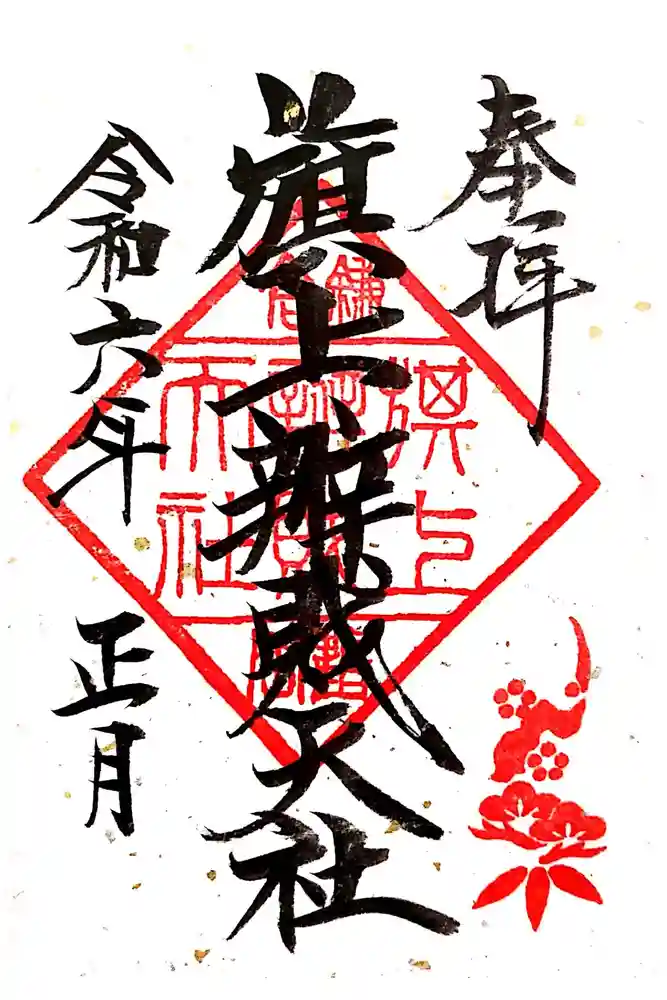 奉拝
旗上辨財天社
令和六年 正月
鎌倉
旗上
天社